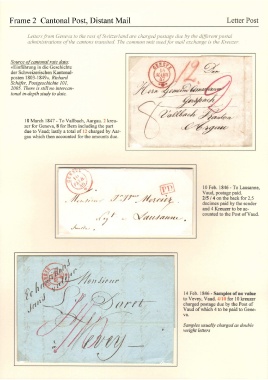 Frame 2 Cantonal Post, Distant Mail
Letter Post
Letters from Geneva to the rest of Switzerland are charged postage due by the different postal
administrations of the cantons transited. The common unit used for mail exchange is the Kreuzer.
Source of cantonal rate data:
«Einführung in die Geschichte
der Schweizerischen Kantonal-
posten 1803-1849», Richard
Schäfer, Postgeschichte 101,
2005. There is still no intercan-
tonal in-depth study to date.
18 March 1847 - To Vallbach, Aargau. 2 kreu-
zer for Geneva, 8 for Bern including the part
due to Vaud; lastly a total of 12 charged by Aar-
gau which then accounted for the amounts due.
GENEVE
Den
Argau
10 Feb. 1846 - To Lausanne,
Vaud, postage paid.
2/5 / 4 on the back for 2.5
decimes paid by the sender
and 4 Kreuzer to be ac-
counted to the Post of Vaud.
P.D.
Monsieur
Mercier
Lausanne
14 Feb. 1846 - Samples of no value
to Vevey, Vaud, 4/10 for 10 kreuzer
charged postage due by the Post of
Vaud of which 4 to be paid to Gene-
va.
Samples usually charged as double
weight letters
Monsieur
Doret
Vevey